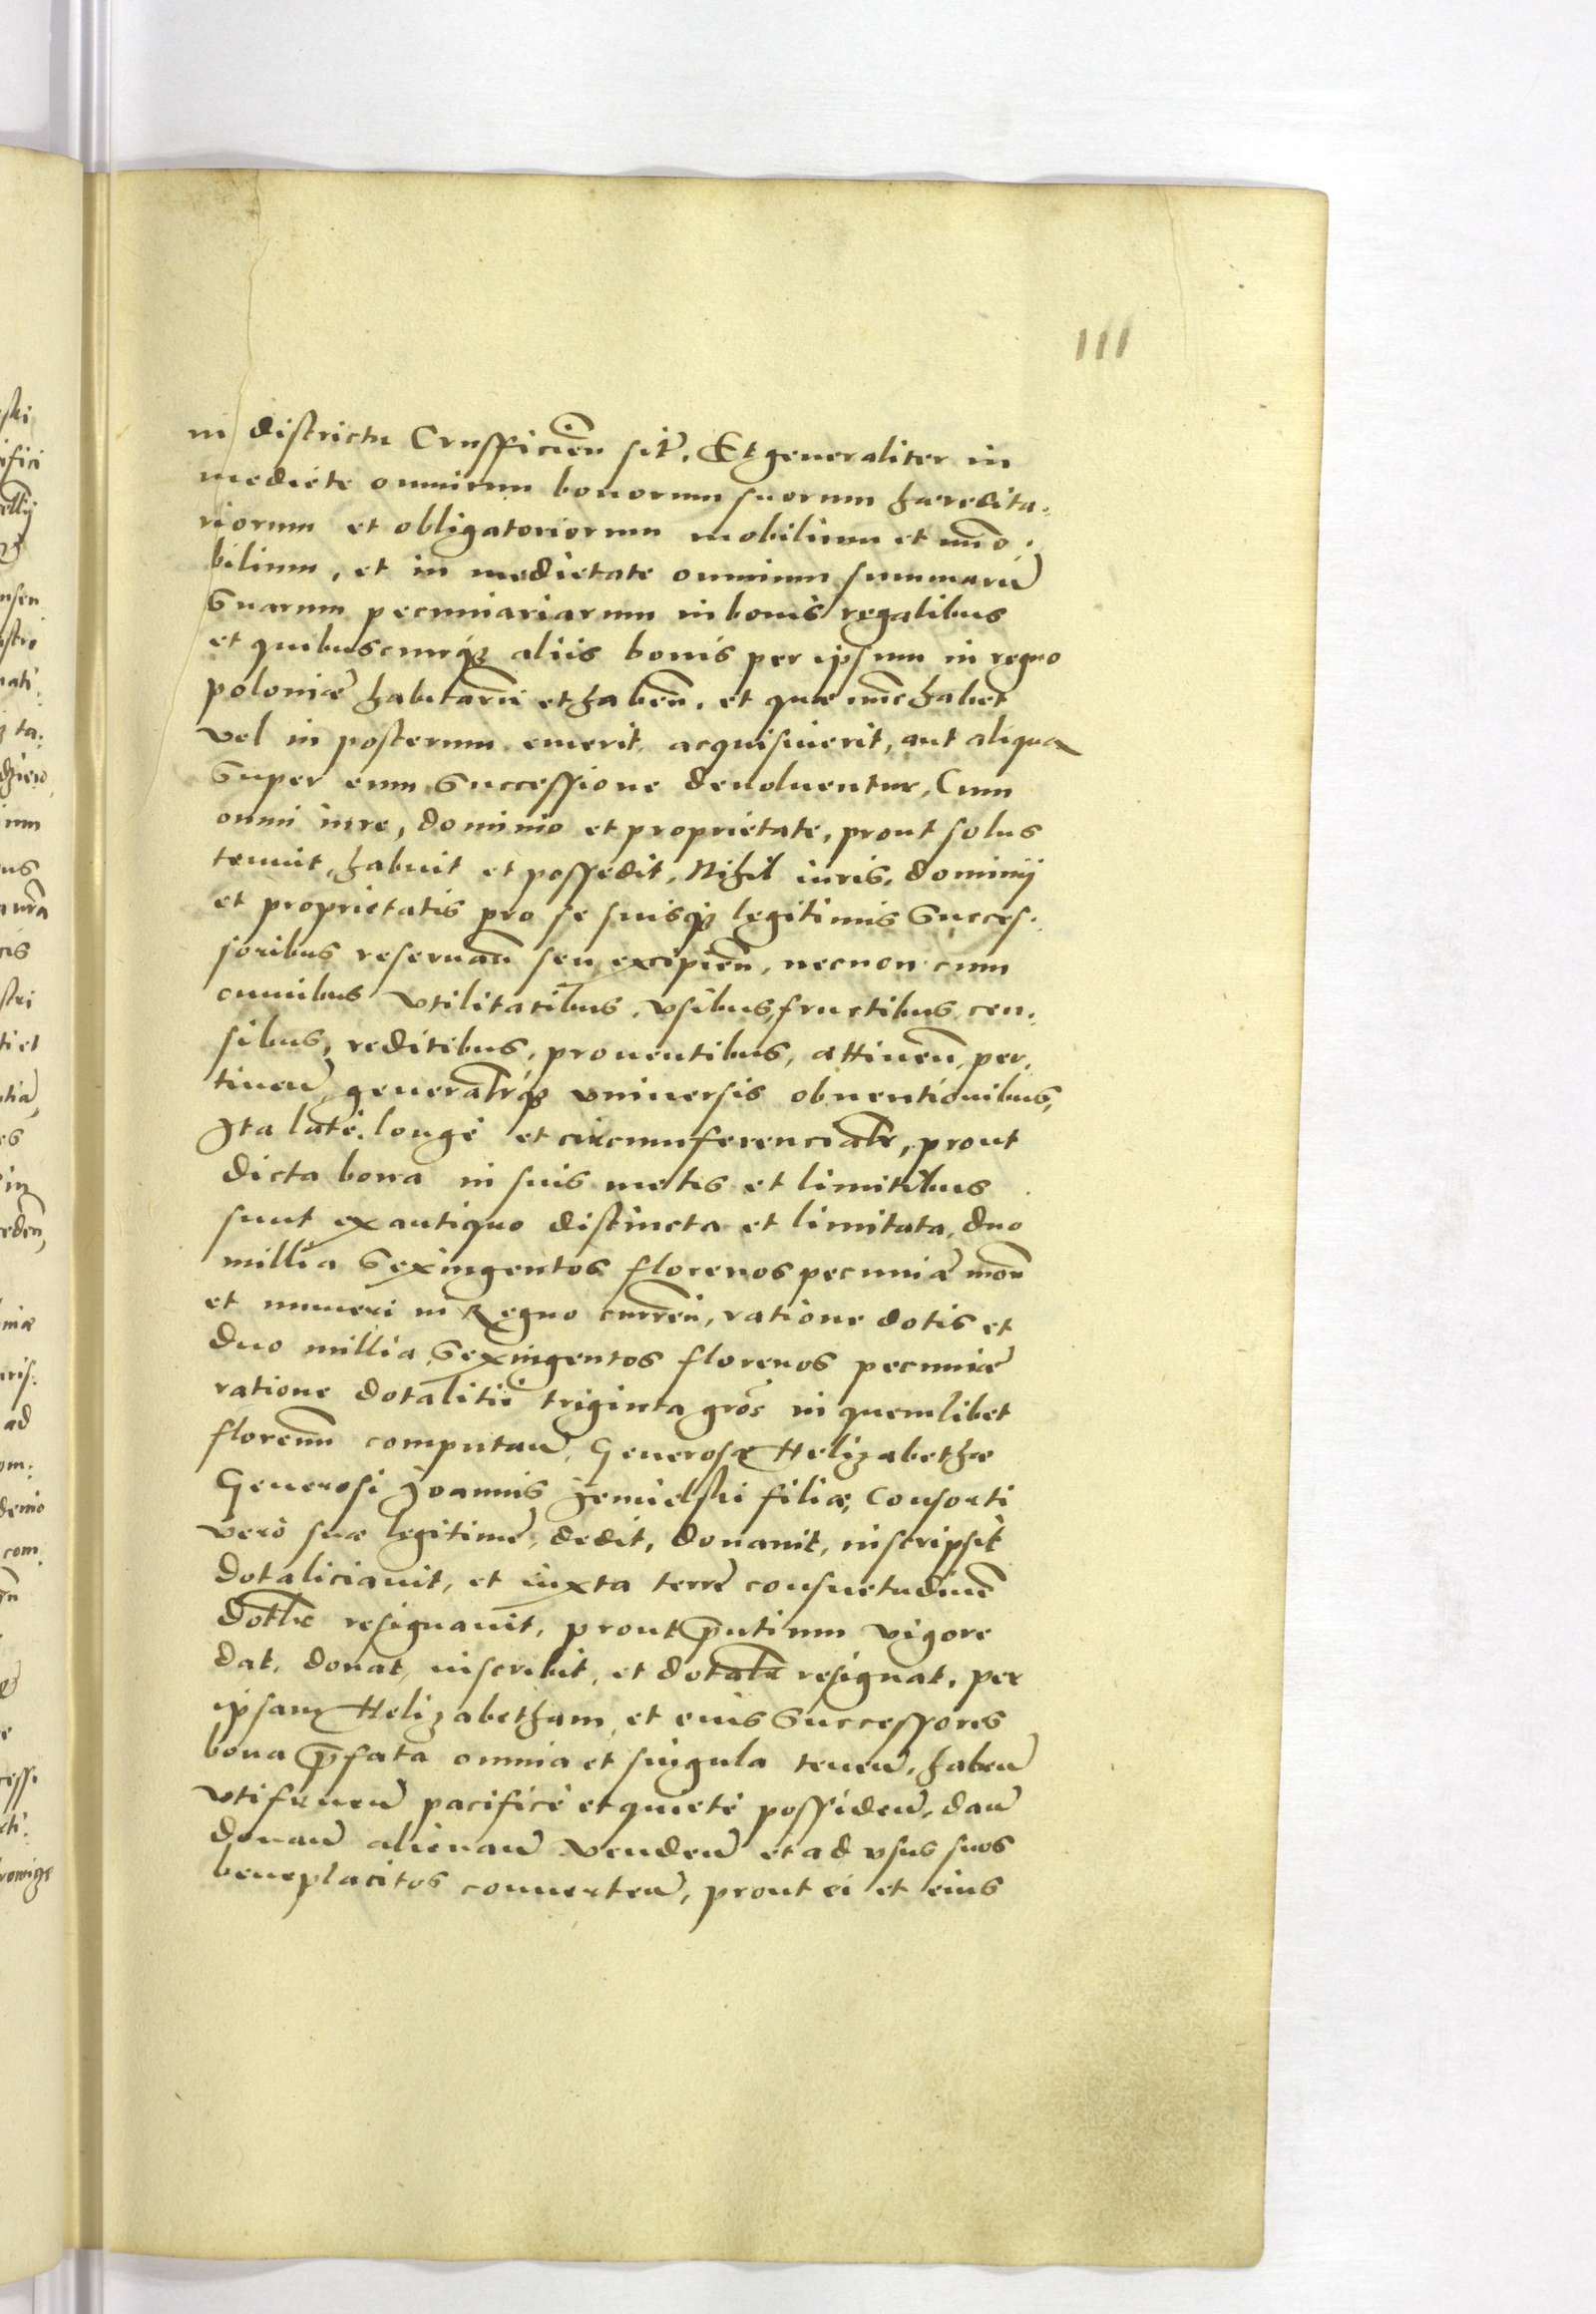 111
in districtu Crusfficien̄ sit̄. Et generaliter in
mediete omnium bonorum suorum hæredita,
riorum et obligatoriorum mobilium et im̄o,
bilium, et in medietate omnium summarū
Suarum pecuniariarum in bonis regalibus
et quibuscunq₃ aliis bonis per ipsum in regno
poloniæ habitarū et haben̄. et quæ nunc habet
vel in posterum emerit, acquisiuerit, aut aliqua
Super eum Successione deuoluentur, Cum
omni iure, dominio et proprietate, prout solus
tenuit, habuit et possedit, Nihil iuris, dominij
et proprietatis pro se suisq₃ legitimis Succes,
soribus reseruan̄ seu excipien̄, necnon cum
omnibus vtilitatibus, vsibus, fructibus, cen,
sibus, reditibus, prouentibus, attinen̄, per,
tinen̄, generalrq₃ vniuersis obuentionibus,
Ita latè, longè et circumferencialr, prout
dicta bona in suis metis et limitibus
sunt ex antiquo distincta et limitata, duo
millia Sexingentos florenos pecuniæ mon̄
et numeri in Regno curren̄, ratione dotis et
duo millia Sexingentos florenos pecuniæ
ratione dotalitii triginta gros̄ in quemlibet
florenū computan̄, Generosæ Helizabethæ
Generosi Joannis Jemielski filiæ, Consorti
verò suæ legitimę, dedit, donauit, inscripsit
dotaliciauit, et iuxta terrę consuetudinē
dotlr resignauit, prout p̄ntium vigore
dat, donat, inscribit, et dotalr resignat, per
ipsam Helizabetham et eius Successores
bona p̄fata omnia et singula tenen̄, haben̄
vtifruen̄ pacificè et quietè possiden̄, dan̄
donan̄ alienan̄ venden̄ et ad vsus suos
beneplacitos conuerten̄, prout ei et eius